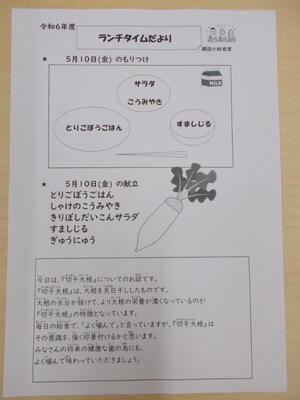 令和6年度
ランチタイムだより
鶴指小給食室
★ 5月10日(金) のもりつけ
サラダ
こうみやき
MILK
とりごぼうごはん
すましじる
★ 5月10日(金) の献立
とりごぼうごはん
しゃけのこうみやき
きりぼしだいこんサラダ
すましじる
ぎゅうにゅう
今日は、『切干大根』についてのお話です。
『切干大根』は、大根を天日干ししたものです。
大根の水分が抜けて、より大根の栄養が濃くなっているのが
『切干大根』の特徴となっています。
毎日の給食で、「よく噛んで」と言っていますが、『切干大根』は
その意識を、強く印象付けるかと思います。
みなさんの将来の健康な歯の為にも、
よく噛んで味わっていただきましょう。